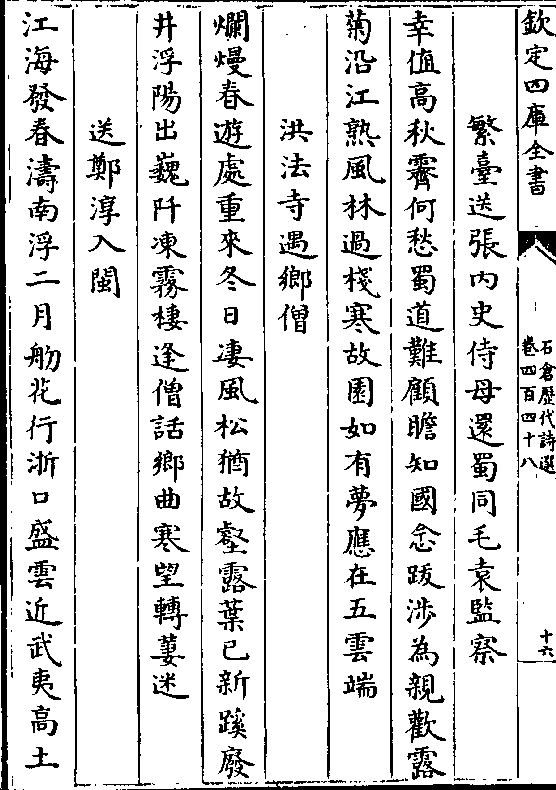 欽定四庫全書
石倉歴代詩選
卷四百四十八
十六
繁臺送張内史侍母還蜀同毛袁監察
幸值高秋霽何愁蜀道難顧瞻知國念跋涉為親歡露
菊沿江熟風林過棧寒故園如有夢應在五雲端
洪法寺遇鄉僧
爛熳春遊處重來冬日凄風松猶故壑露葉已新蹊廢
井浮陽出巍阡凍霧棲逢僧話鄉曲寒望轉萋迷
送鄭淳入閩
江海發春濤南浮二月舠花行浙口盛雲近武夷高土